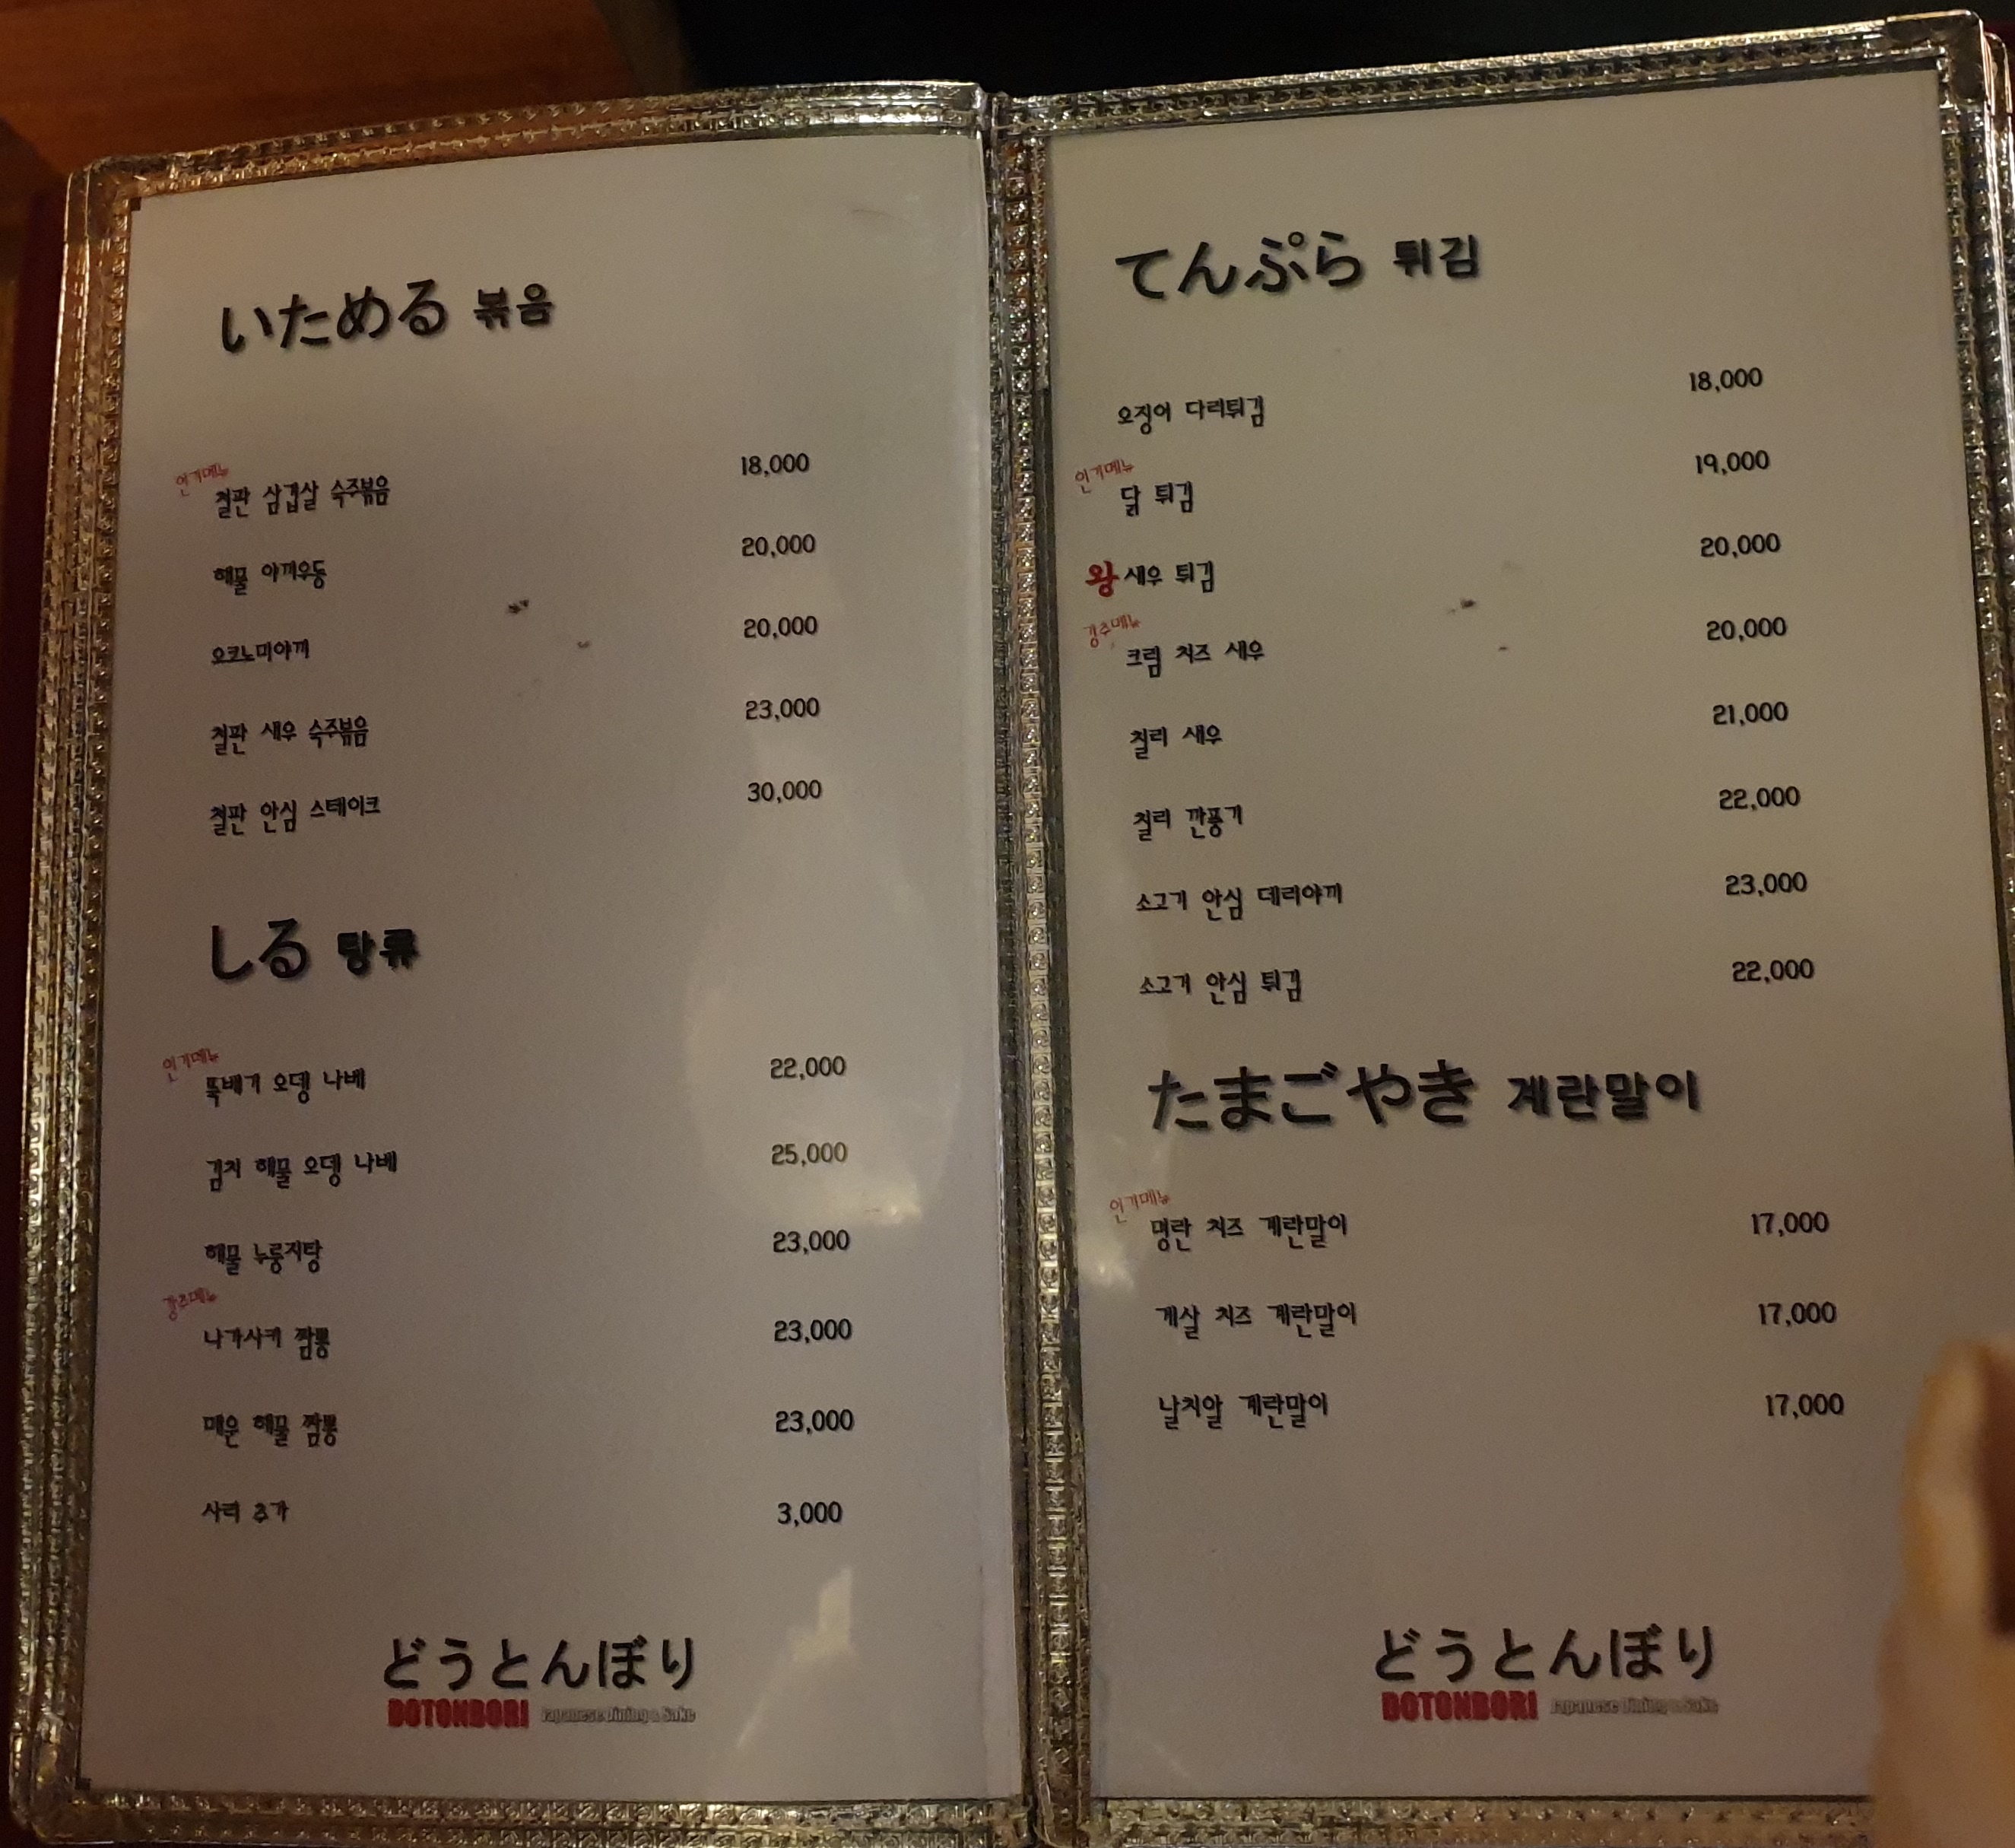 いためる 볶음
인기메뉴
철판 삼겹살 숙주볶음 18,000
해물 야끼우동 20,000
오코노미야끼 20,000
철판 새우 숙주볶음 23,000
철판 안심 스테이크 30,000
しる 탕류
인기메뉴
뚝배기 오뎅 나베 22,000
김치 해물 오뎅 나베 25,000
해물 누룽지탕 23,000
강추메뉴
나가사키 짬뽕 23,000
매운 해물 짬뽕 23,000
사리 추가 3,000
どうとんぼり
DOTONBORI Japanese Dining & Sake
てんぷら 튀김
오징어 다리튀김 18,000
인기메뉴
닭 튀김 19,000
왕새우 튀김 20,000
강추메뉴
크림 치즈 새우 20,000
칠리 새우 21,000
칠리 깐풍기 22,000
소고기 안심 데리야끼 23,000
소고기 안심 튀김 22,000
たまごやき 계란말이
인기메뉴
명란 치즈 계란말이 17,000
게살 치즈 계란말이 17,000
날치알 계란말이 17,000
どうとんぼり
DOTONBORI Japanese Dining & Sake